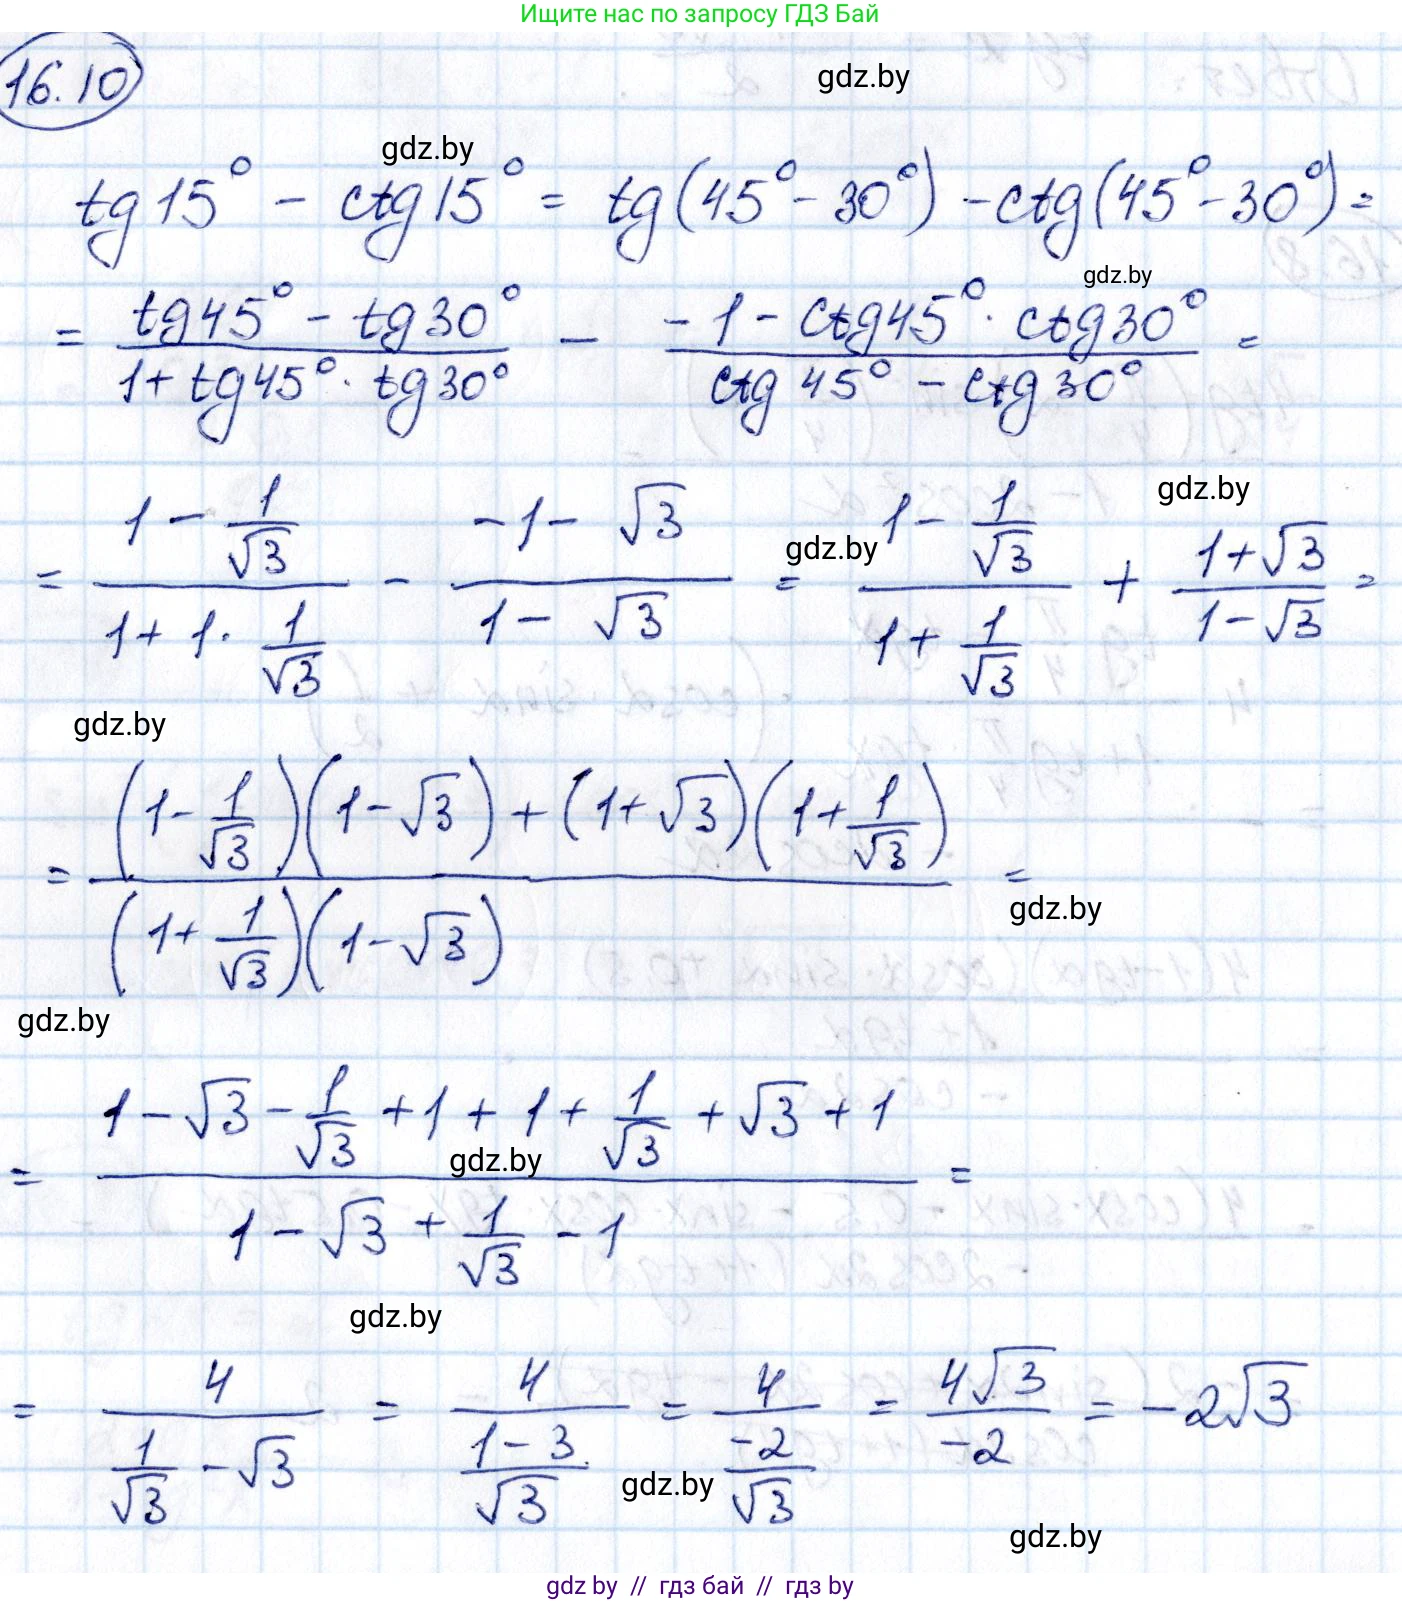 Ищите нас по запросу ГДЗ Бай
16.10
gdz.by
gdz.by
tg 15° - ctg 15° = tg(45° - 30°) - ctg(45° - 30°) =
gdz.by
= (tg 45° - tg 30°)/(1 + tg 45° · tg 30°) - (-1 - ctg 45° · ctg 30°)/(ctg 45° - ctg 30°) =
gdz.by
gdz.by
= (1 - 1/√3)/(1 + 1 · 1/√3) - (-1 - √3)/(1 - √3) = (1 - 1/√3)/(1 + 1/√3) + (1 + √3)/(1 - √3) =
gdz.by
= ((1 - 1/√3)(1 - √3) + (1 + √3)(1 + 1/√3))/((1 + 1/√3)(1 - √3)) =
gdz.by
gdz.by
= (1 - √3 - 1/√3 + 1 + 1 + 1/√3 + √3 + 1)/(1 - √3 + 1/√3 - 1) =
gdz.by
gdz.by
= 4/(1/√3 - √3) = 4/((1 - 3)/√3) = 4/(-2/√3) = 4√3/-2 = -2√3
gdz.by
gdz.by
gdz by // гдз бай // гдз by